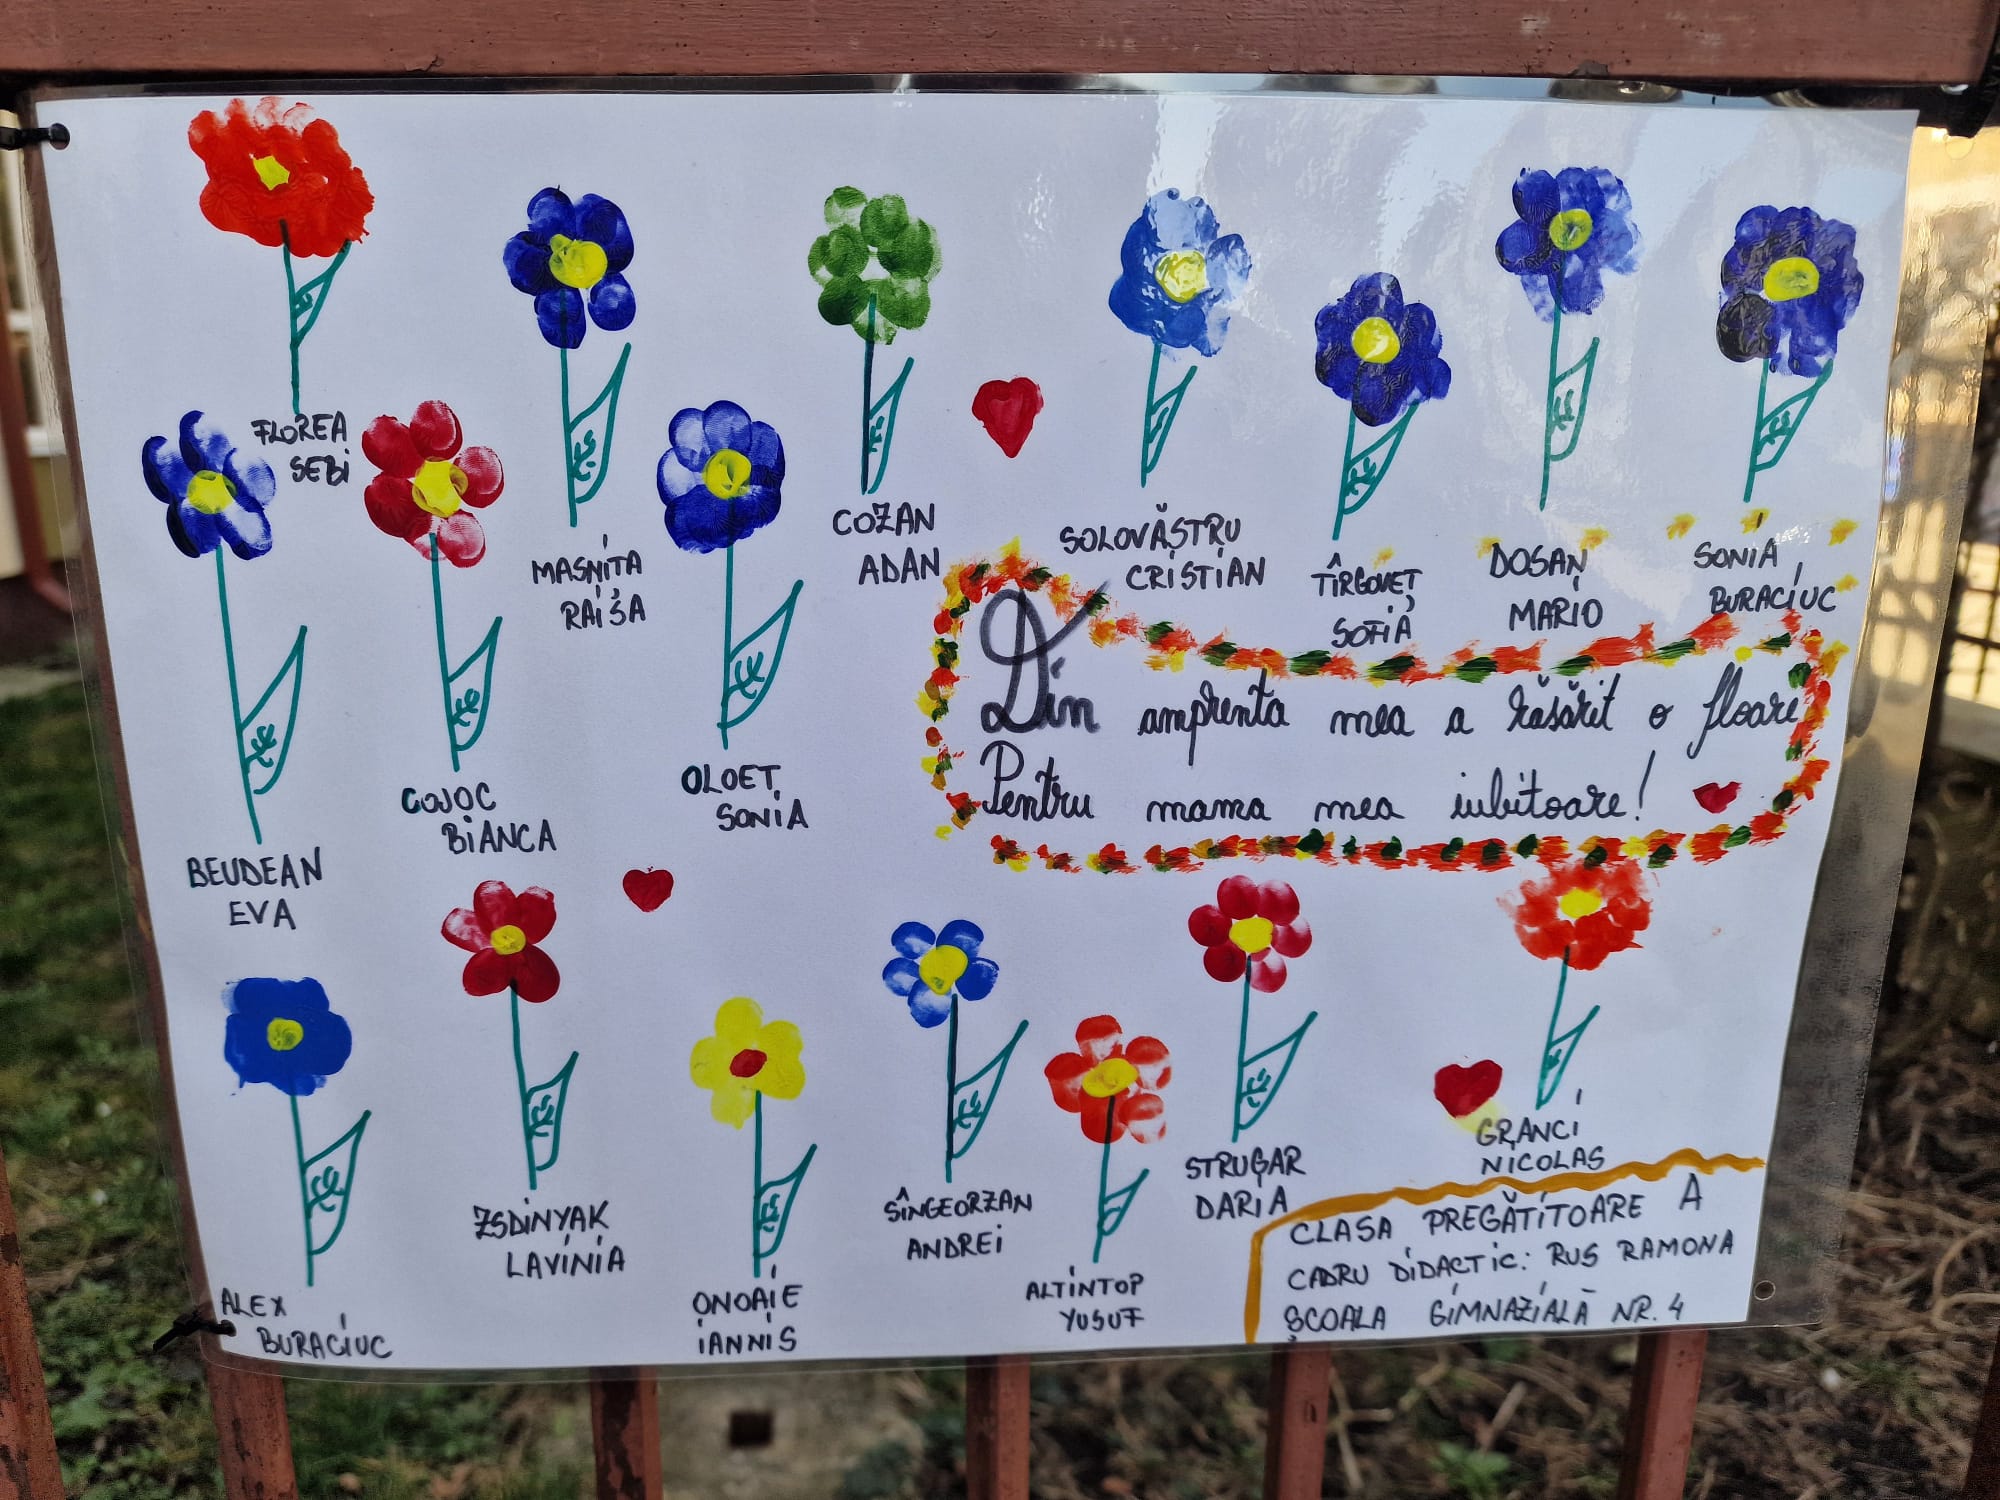 FLOREA
SEBI
MASNITA
RAISA
COZAN
ADAN
SOLOVĂSTRU
CRISTIAN
TÎRGOVEȚ
SOFIA
DOSAN
MARIO
SONIA
BURACIUC
BEUDEAN
EVA
COJOC
BIANCA
OLOET
SONIA
Din amprenta mea a răsărit o floare
Pentru mama mea iubitoare!
ALEX
BURACIUC
ZSDINYAK
LAVINIA
ONOAIE
IANNIS
SÎNGEORZAN
ANDREI
ALTINTOP
YUSUF
STRUGAR
DARIA
GRANCI
NICOLAS
CLASA PREGĂTITOARE A
CADRU DIDACTIC: RUS RAMONA
ȘCOALA GIMNAZIALĂ NR. 4